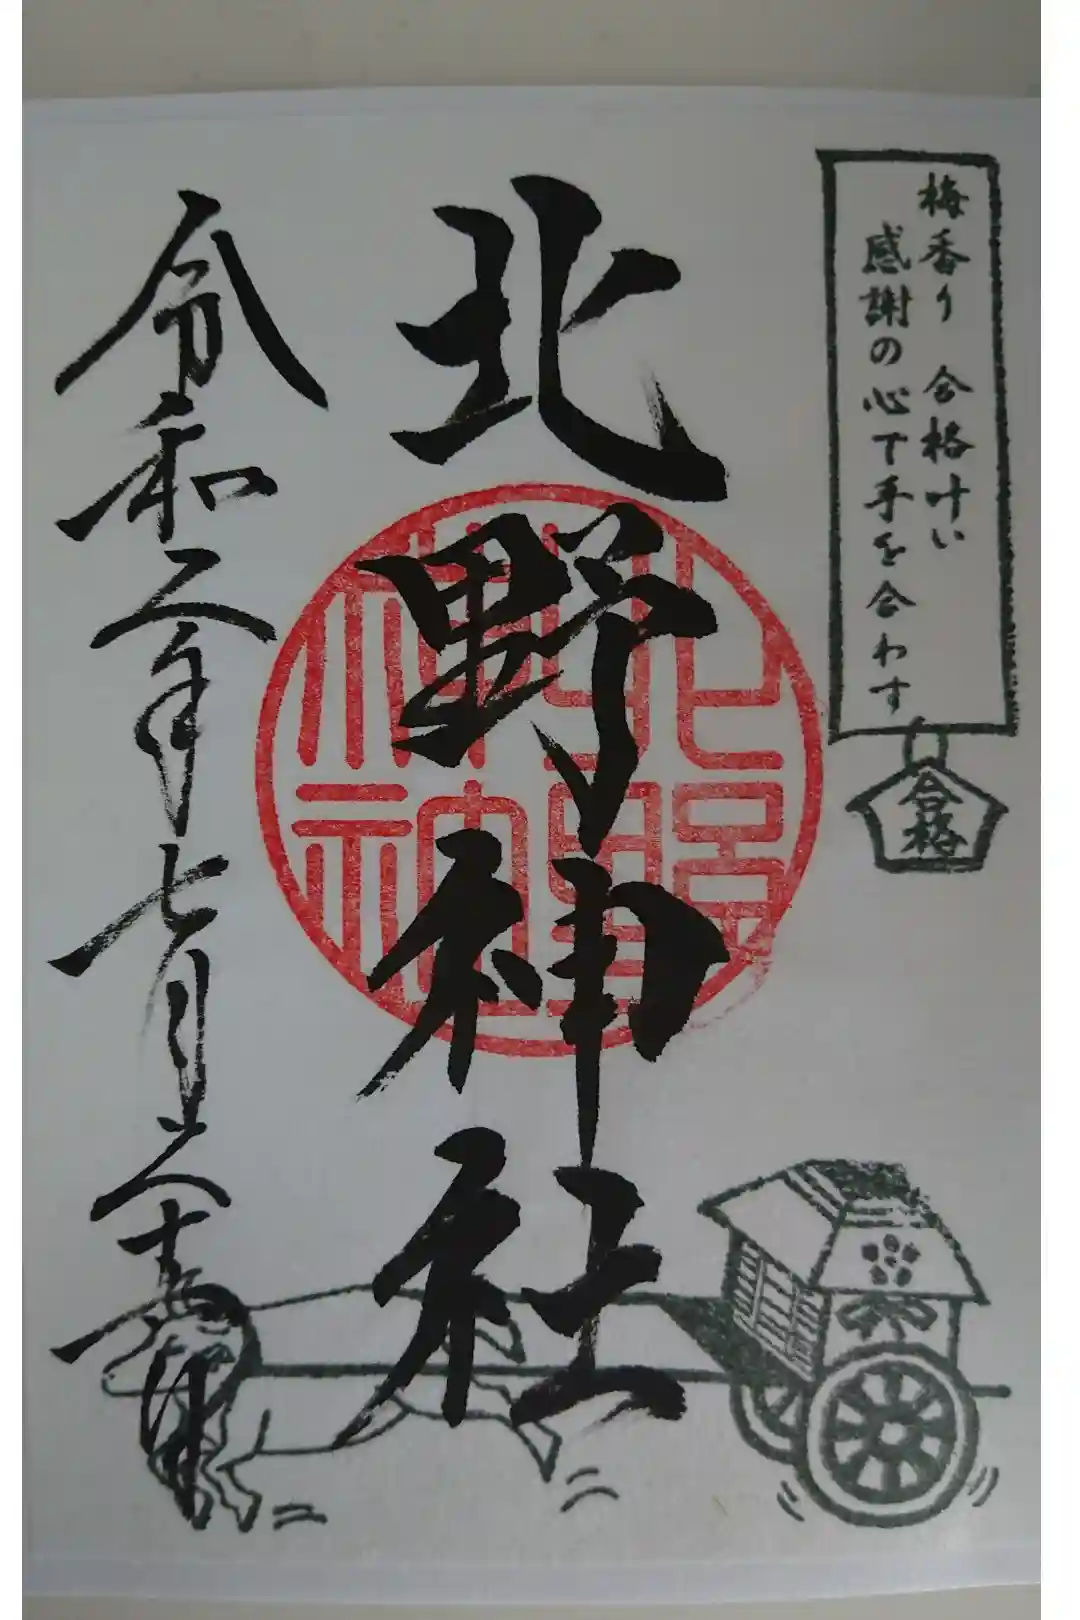 梅香り 合格叶い
感謝の心で手を合わす
合格
北野神社
令和二年七月二十五日